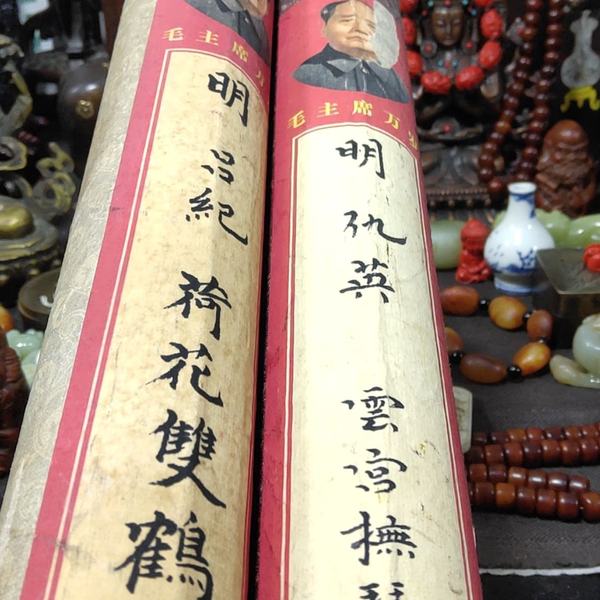 毛主席万
明 吕紀 荷花雙鶴
毛主席万
明 仇英 雲宮撫